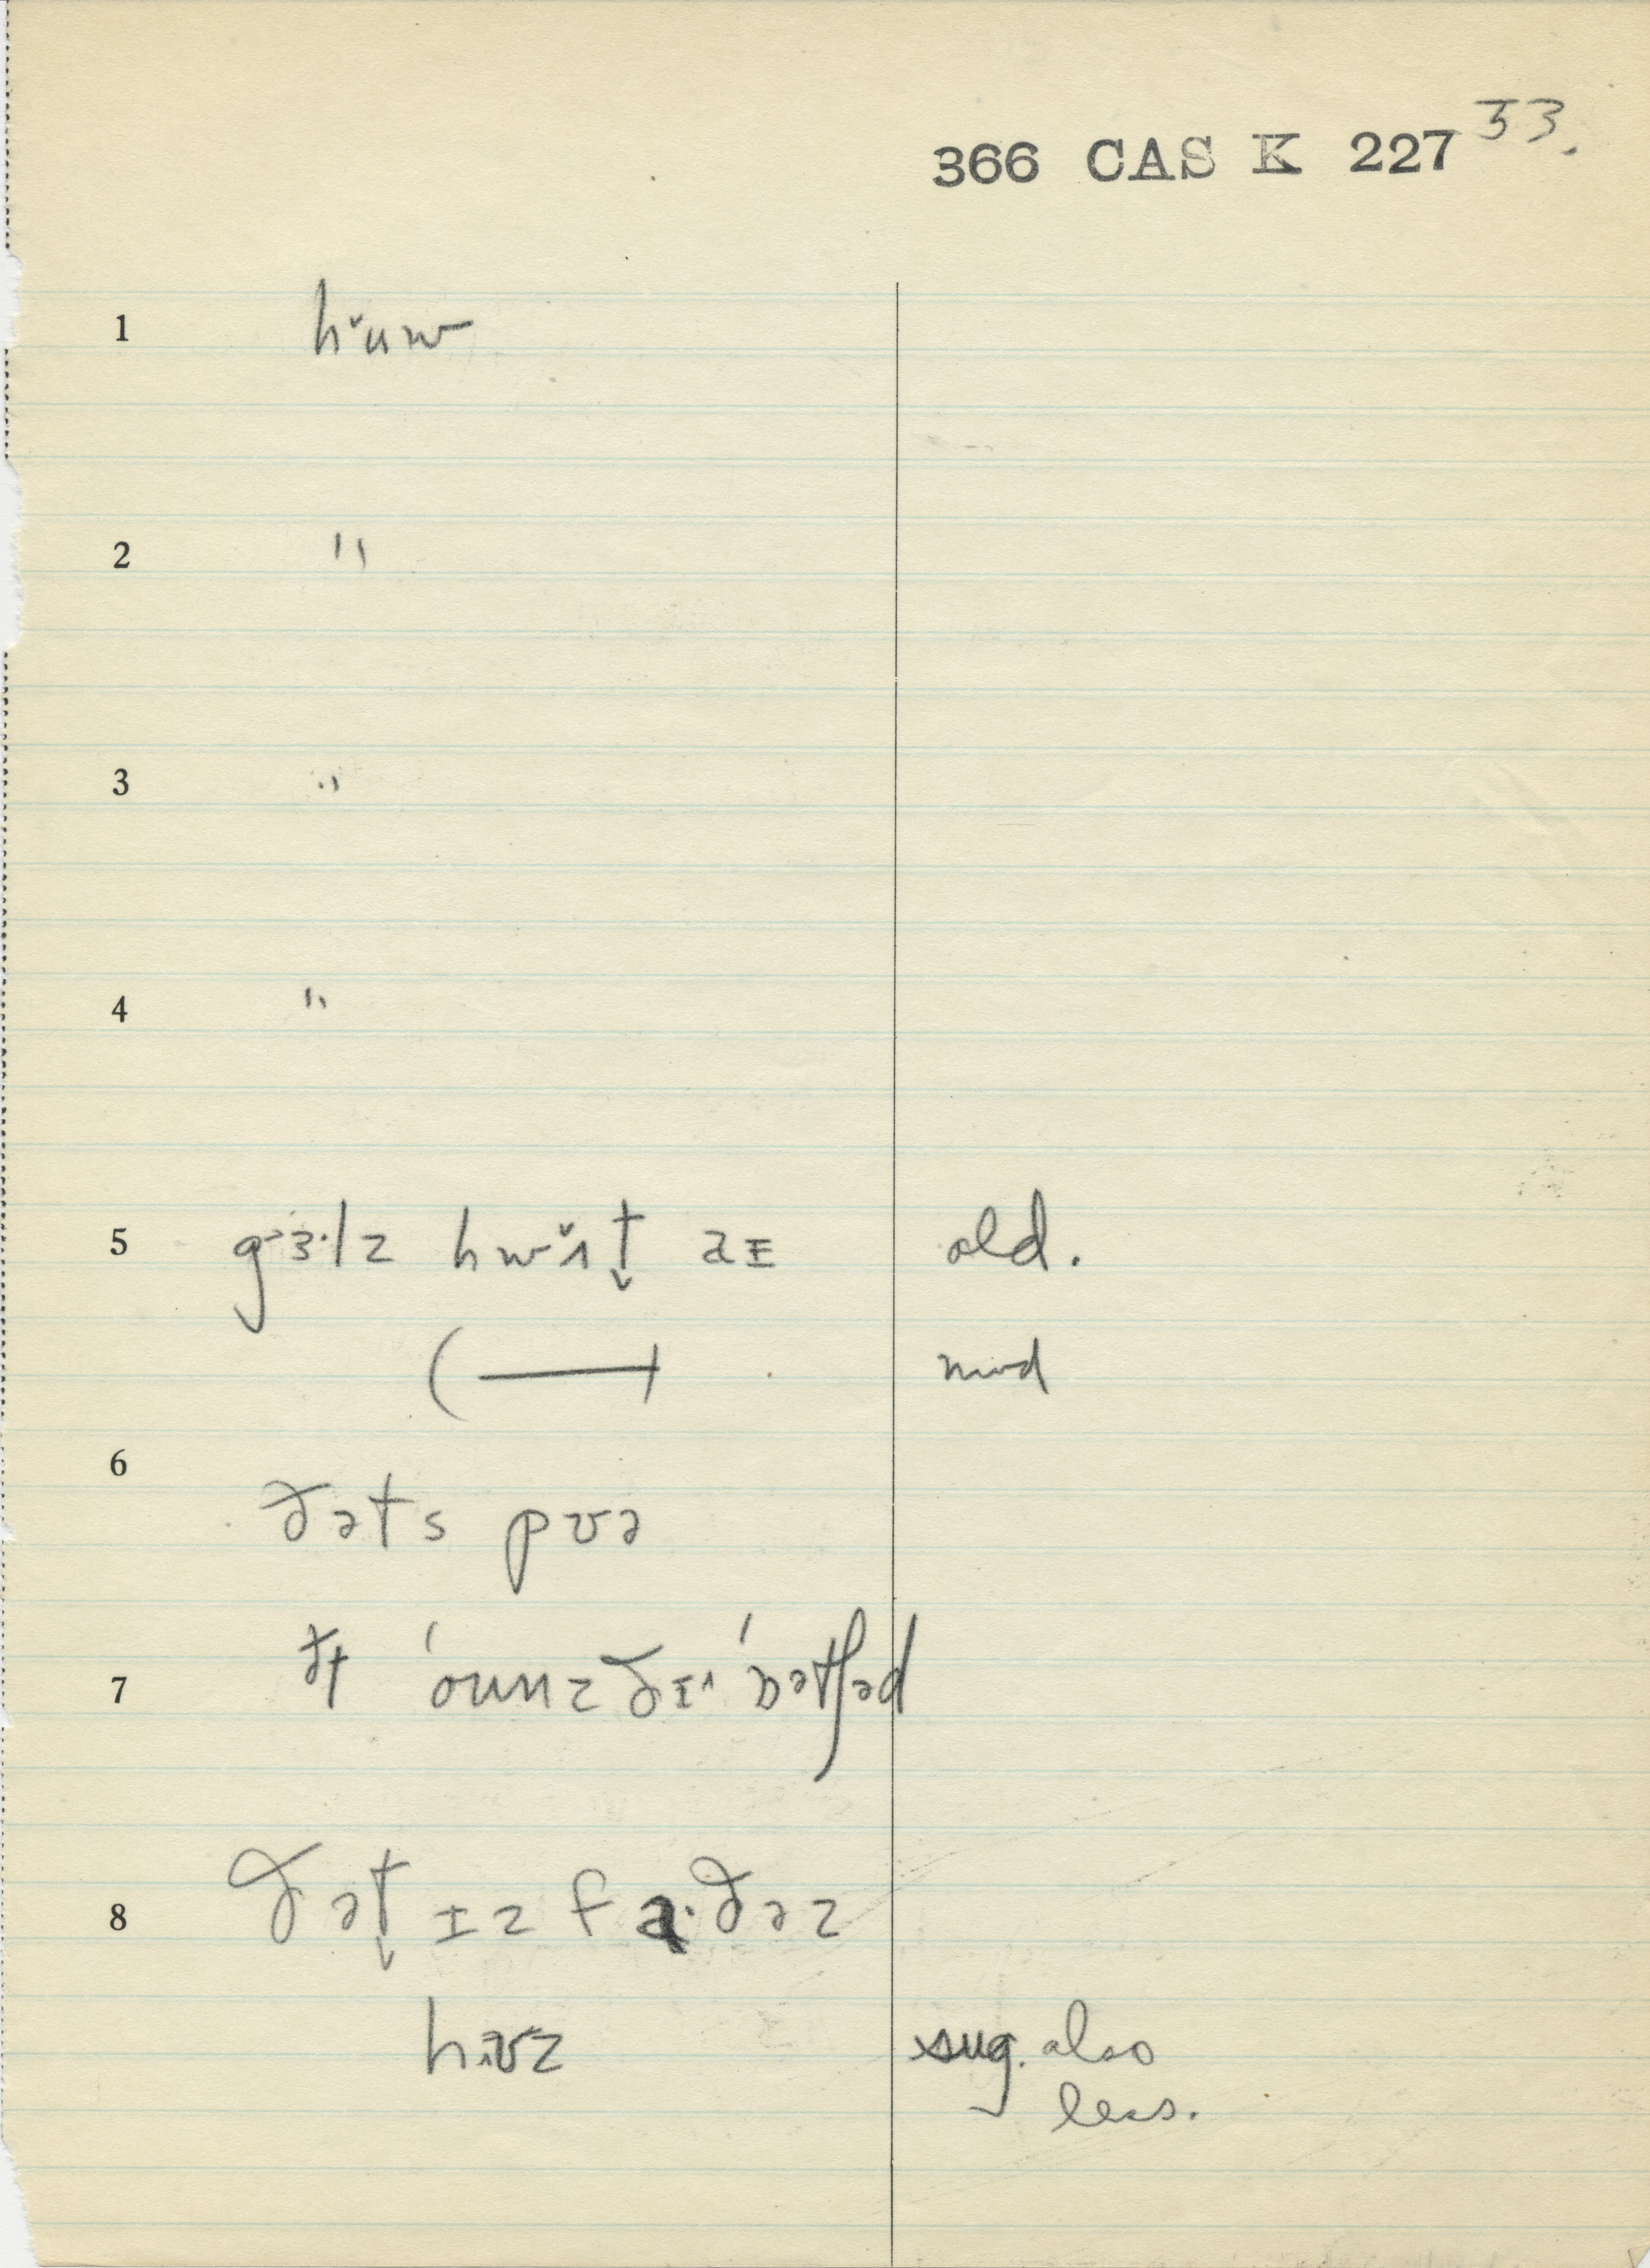 366 CAS K 227 53.
1 hᵛuw
2 "
3 "
4 "
5 gɜ·lz hwᵛɪt̬ aɪ old.
( — ) mod
6 ðəts pʊə
7 ðt ˈounz ðɪˈɒətʃəd
8 ðət̬ ɪz fɑ·ðəz
hɪʊz sug. also
less.